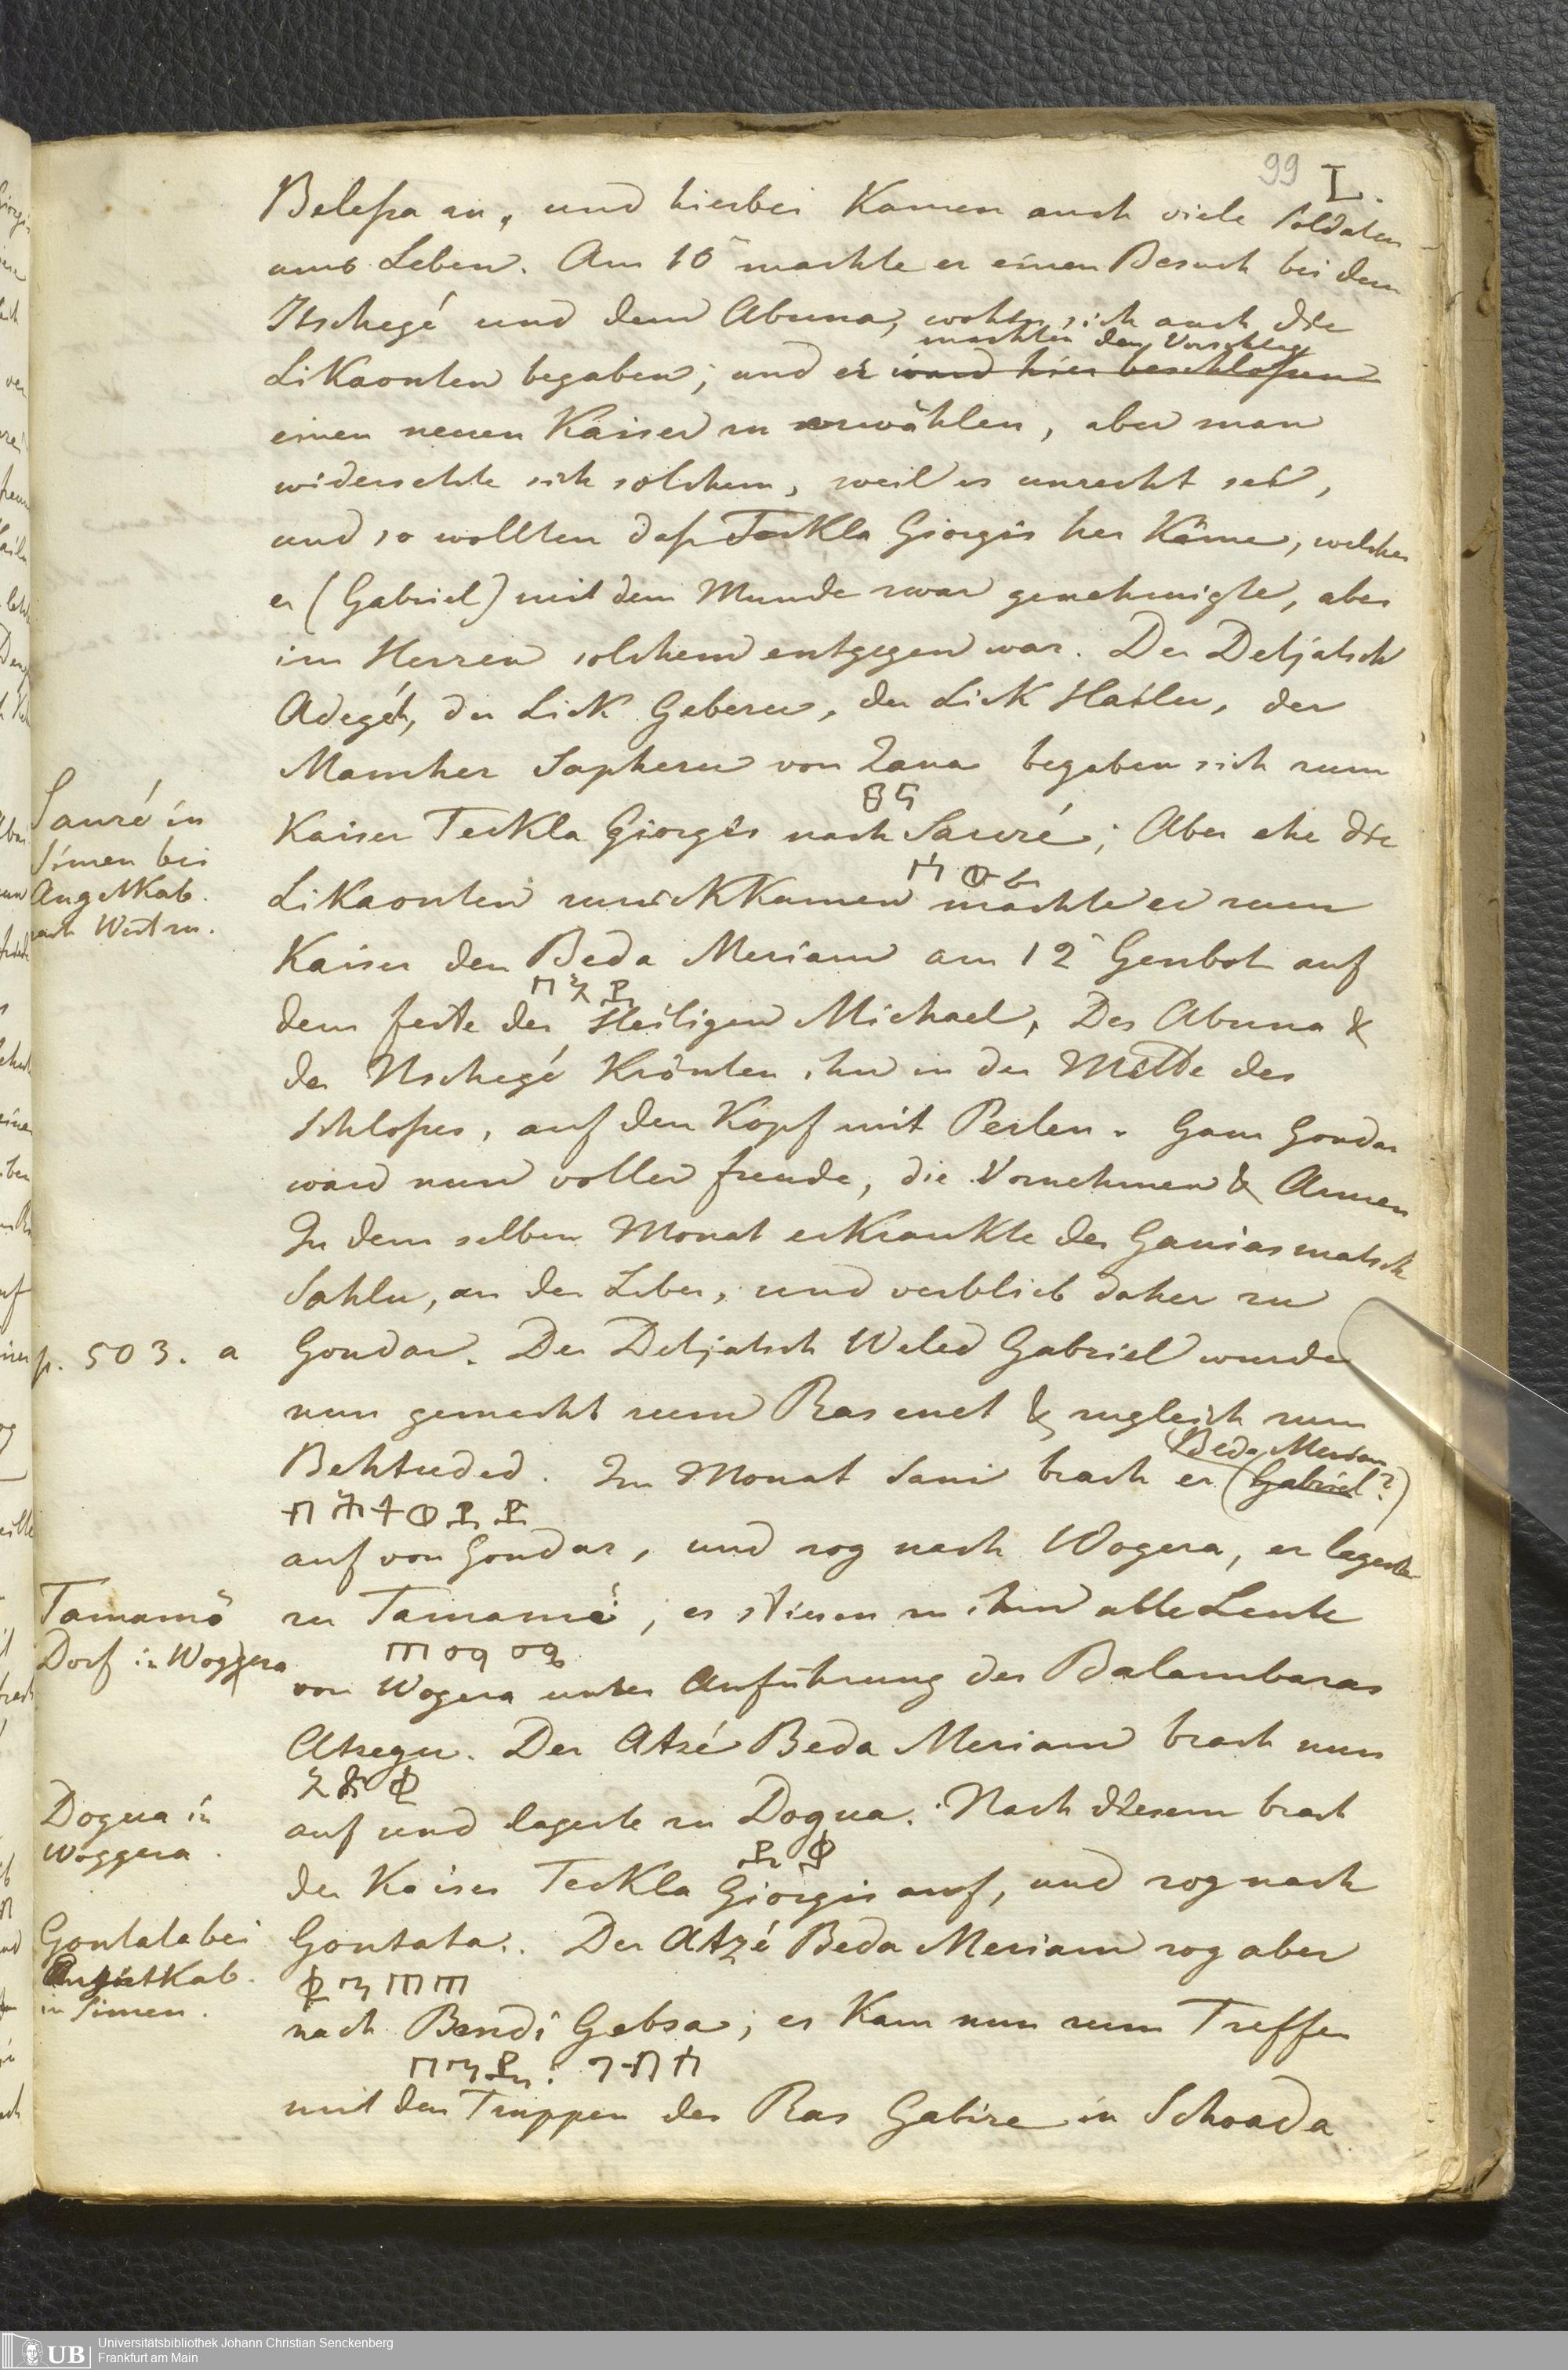 99 L.
Beleſsa an, und hierbei Kamen auch viele Soldaten
ums Leben. Am 10 machte er einen Besuch bei dem
Itschegé und dem Abuna, wohin sich auch die
machten den Vorschlag
LiKaonten begaben; und er ward hier beschloſsen
einen neuen Kaiser zu erwählen, aber man
widersetzte sich solchem, weil es unrecht sei,
und so wollten daſs TecKla Giorgis her Käme, welches
er (Gabriel) mit dem Munde zwar genehmigte, aber
im Herzen solchem entgegen war. Der Detjatsch
Adegéh, der LicK Geberu, der LicK Hailu, der
Mamher Sapheru von Zana begaben sich zum
ፀና
Kaiser TecKla Giorgis nach Sauré; Aber ehe die
ሳውሬ
LiKaonten zurückKamen machte er zum
Kaiser den Beda Meriam am 12 Genbot auf
በእደ
dem feste des Heiligen Michael, Der Abuna &
der Itschegé Krönten ihn in der Mitte des
Schloſses, auf den Kopf mit Perlen. Ganz Gondar
ward nun voller freude, die Vornehmen & Armen
In dem selben Monat erkrankte der Ganiasmatsch
Sahlu, an der Leber, und verblieb daher zu
p. 503. a
Gondar. Der Detjatsch Weled Gabriel wurde
nun gemacht zum Ras enet & zugleich zum
Beda Meriam
Behtuded. Im Monat Sani brach er (Gabriel?)
ብሕተወደድ
auf von Gondar, und zog nach Wogera, er lagerte
zu Tamamé, es stiesen zu ihm alle Leute
ጠማማ
von Wogera unter Anführung des Balambaras
Atzegu. Der Atzé Beda Meriam brach nun
auf und lagerte zu Dogua. Nach diesem brach
ዶቋ
der Kaiser TecKla Giorgis auf, und zog nach
Gontata. Der Atzé Beda Meriam zog aber
ቆንጠጠ
nach Bendi Gebsa, es Kam nun zum Treffen
በንዲ፡ ግብሳ
mit den Truppen des Ras Gabire in Schoada
Sauré in
Simen bei
AngetKab.
nach West zu.
Tamamo
Dorf in Woggera
Dogua in
Woggera.
Gontata bei
AngetKab.
in Simen.
UB Universitätsbibliothek Johann Christian Senckenberg
Frankfurt am Main